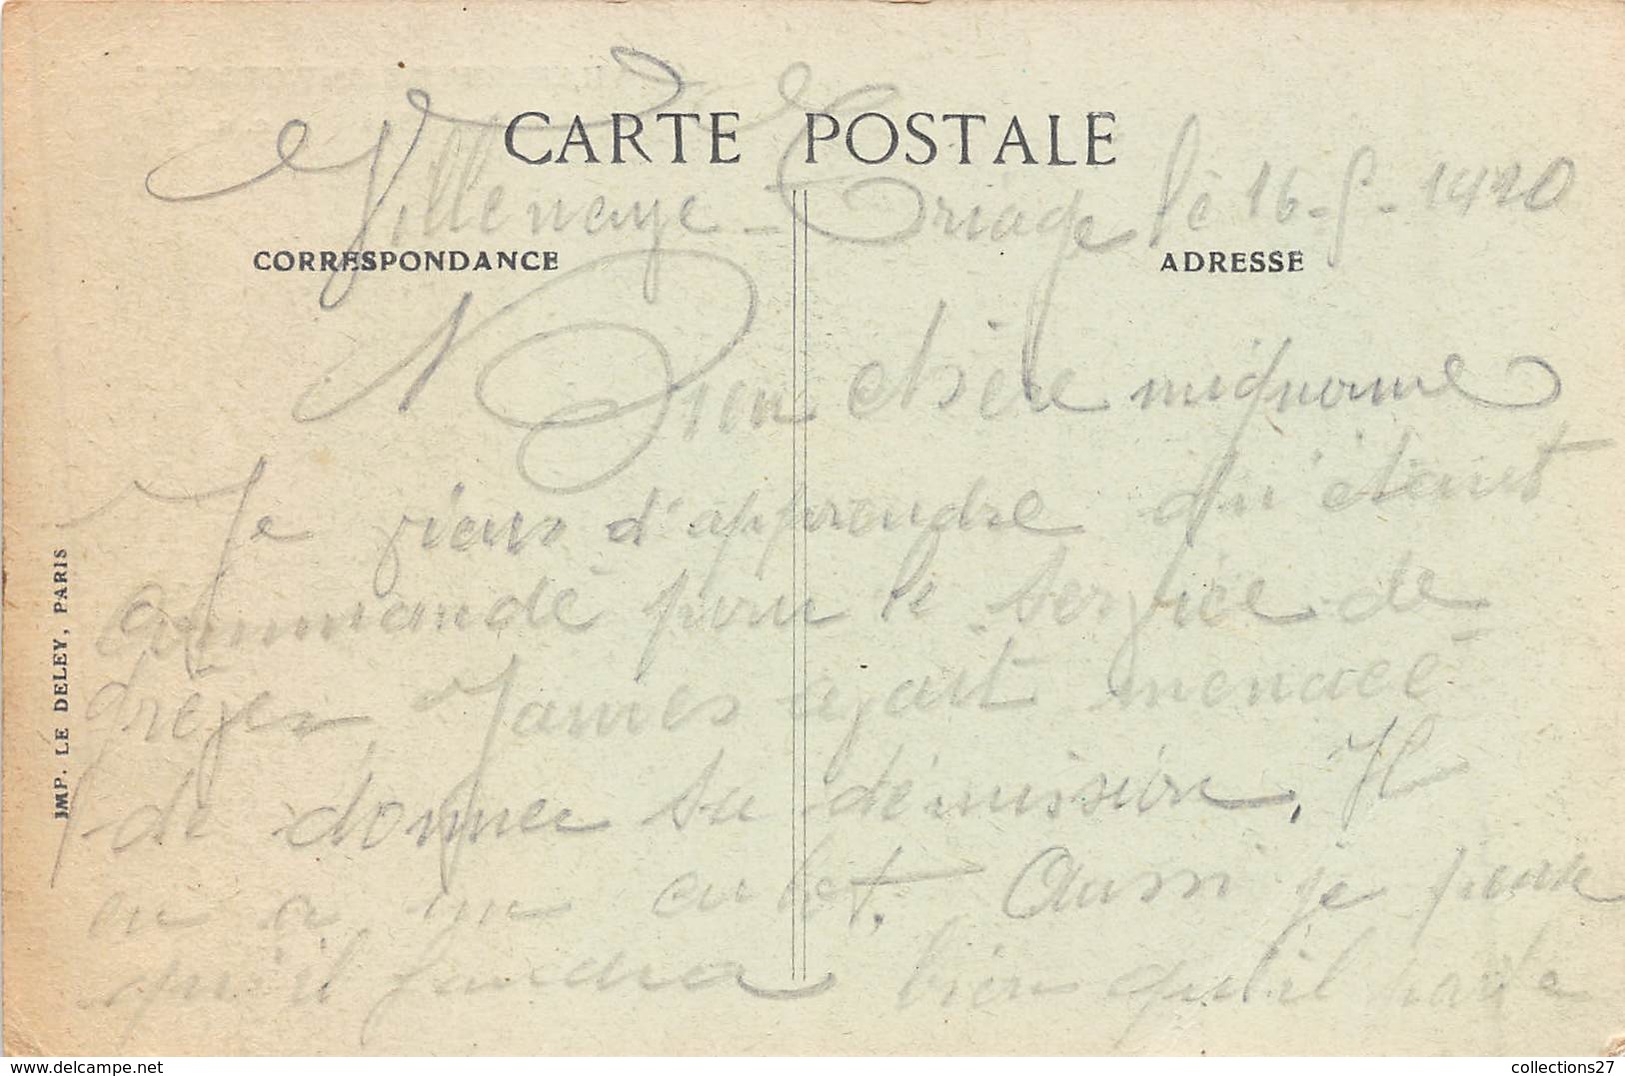 CARTE POSTALE
Villeneuve-Triage le 16-5-1920
CORRESPONDANCE
ADRESSE
Bien chère mignonne
Je viens d'apprendre qu'étant
commandé pour le service de
James ayant menacé
de donner sa démission. Il
en a un culot. Aussi je pense
qu'il faudra bien qu'il parte
IMP. LE DELEY, PARIS
collections27